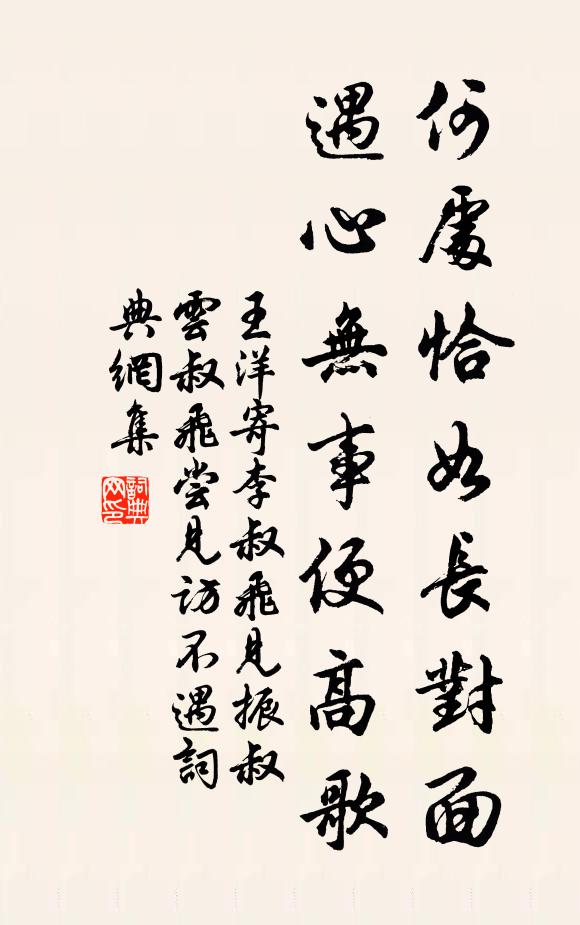 何處恰如長對面
遇心無事便高歌
王洋寄李叔飛見振叔
雲叔飛嘗見訪不遇詞
典網集
詞典
网印